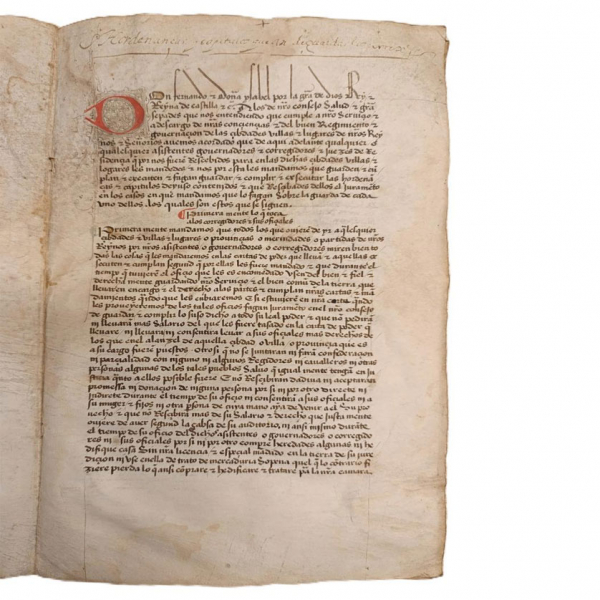 Don fernando & Doña ysabel por la grã de dios Rey &
Reyna de castilla & c̃ A los de nr̃o consejo Salud & grã
sepades que nos entendiendo que cumple a nr̃o Serviço &
a descargo de nr̃as conçiençias & del buen Regimiento &
governaçion de las çibdades villas & lugares de nr̃os Rey
nos & Señorios avemos acordado que de aqui adelante qualquier o
qualesquier asistentes governadores & corregidores & juezes de Re
sidençia q̃ por nos fuere Resçebidos para en las dichas çibdades villas &
logares les mandedes & nos por esta les mandamos que guarden & cũ
plan & executen & fagan guardar & complir & executar las hordenã
ças & capitulos deyuso contenidos & que Resçibades dellos el juramẽto
en los casos en que mandamos que lo fagan Sobre la guarda de cada
vno dellos los quales son estos que se siguen
Primera mente lo q̃ toca
a los corregidores & sus ofiçiales
Primera mente mandamos que todos los que oviere de yr a qualquier
çibdades & villas & lugares o provinçias o merindades o partidas de nr̃os
Reynos por nr̃os asistentes o governadores o corregidores miren bien to
das las cosas q̃ les mandaremos en las cartas de poder que lleva & aquellas e
secuten & cumplan segund q̃ por ellas les fuere mandado & que durante el
tiempo q̃ tuvierẽ el ofiçio que les es encomendado vsen del bien & fiel &
derecha mente guardando nr̃o Serviçio & el bien comũ de la tierra que
llevaren en cargo & el derecho a las partes & cumplan nr̃as cartas & mã
damientos q̃ndo que les enbiaremos E si estuvierẽ en nr̃a corte q̃ndo
les proveyeremos de los tales ofiçios fagan juramẽto en el nr̃o consejo
de guardar & complir lo suso dicho a todo su leal poder & que no pedirã
ni llevarã mas Salario del que les fuere tasado en la carta de poder q̃
llevarẽ ni llevarã ni consentira levar a sus ofiçiales mas derechos de
los que en el aranzel de aquella çibdad o villa o provinçia que es
a su cargo fuerẽ puestos Otrosi q̃ no se juntaran ni farã confederaçion
ni parçialidad con ninguno ni algunos Regidores ni cavalleros ni otras
personas algunas de los tales pueblos Salvo q̃ igual mente tengã en ju
stiçia q̃nto a ellos posible fuere E no Resçibiran dadiva ni aceptaran
promessa ni donaçion de ninguna persona por si ni por otro directe ni
indirecte durante el tiempo de su ofiçio ni consentirã a sus ofiçiales ni a
su muger & fijos ni otra p̃sona de cuya mano aya de venir a el
vecho & que no Resçibira mas de su Salario & derecho que justa mente
oviere de aver segund la tabla de su auditorio ni ansi mismo durãte
el tiempo de su ofiçio del dicho asistentes o governadores o corregido
res ni sus ofiçiales por si ni por otro compre heredades algunas ni he
difique casa Sin nr̃a liçençia & espeçial mãdado en la tierra de su jure
diçion ni vse en ella de trato de mercaduria So pena quel q̃ lo contrario fi
ziere pierda lo q̃ ansi cõprare & hedificare & tratare pa la nr̃a camara.